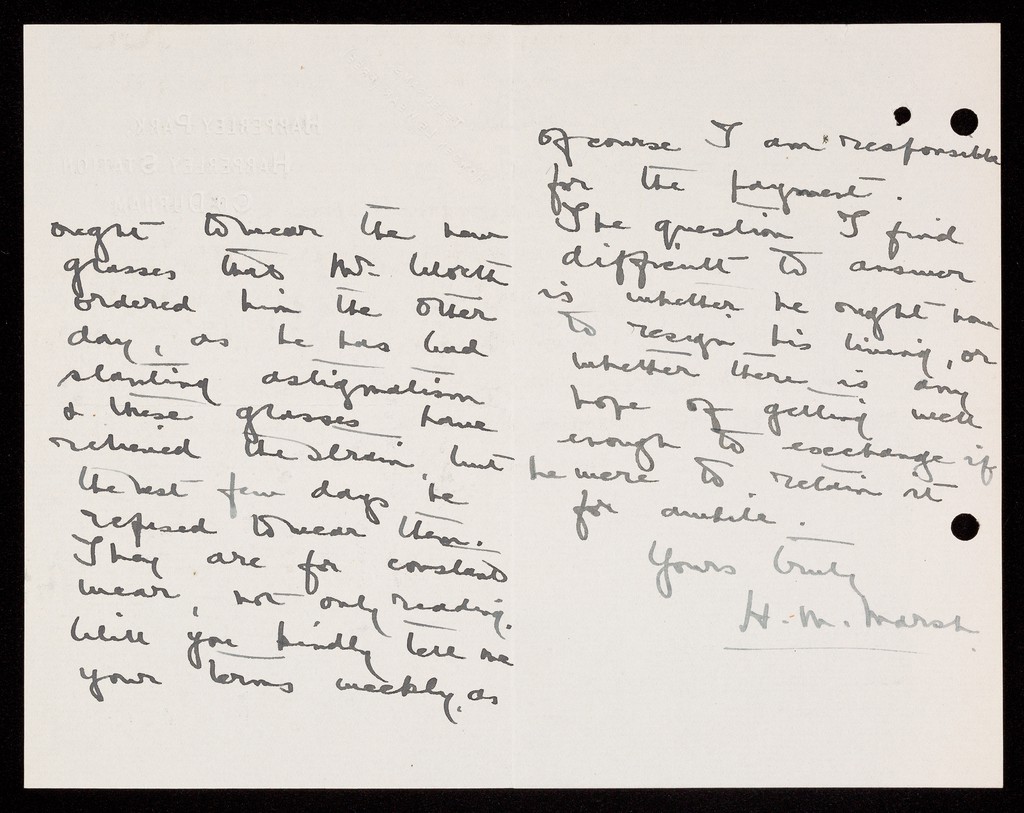 ought to wear the new
glasses that Mr. Worth
ordered him the other
day, as he has bad
slanting astigmatism
& these glasses have
relieved the strain, but
the last few days he
refused to wear them.
They are for constant
wear, not only reading.
Will you kindly tell me
your terms weekly, as
of course I am responsible
for the payment.
The question I find
difficult to answer
is whether he ought now
to resign his living, or
whether there is any
hope of getting well
enough to exchange if
he were to retain it
for awhile.
Yours truly
H. M. Marsh
HARPERLEY PARK
HARPERLEY STATION
CO. DURHAM